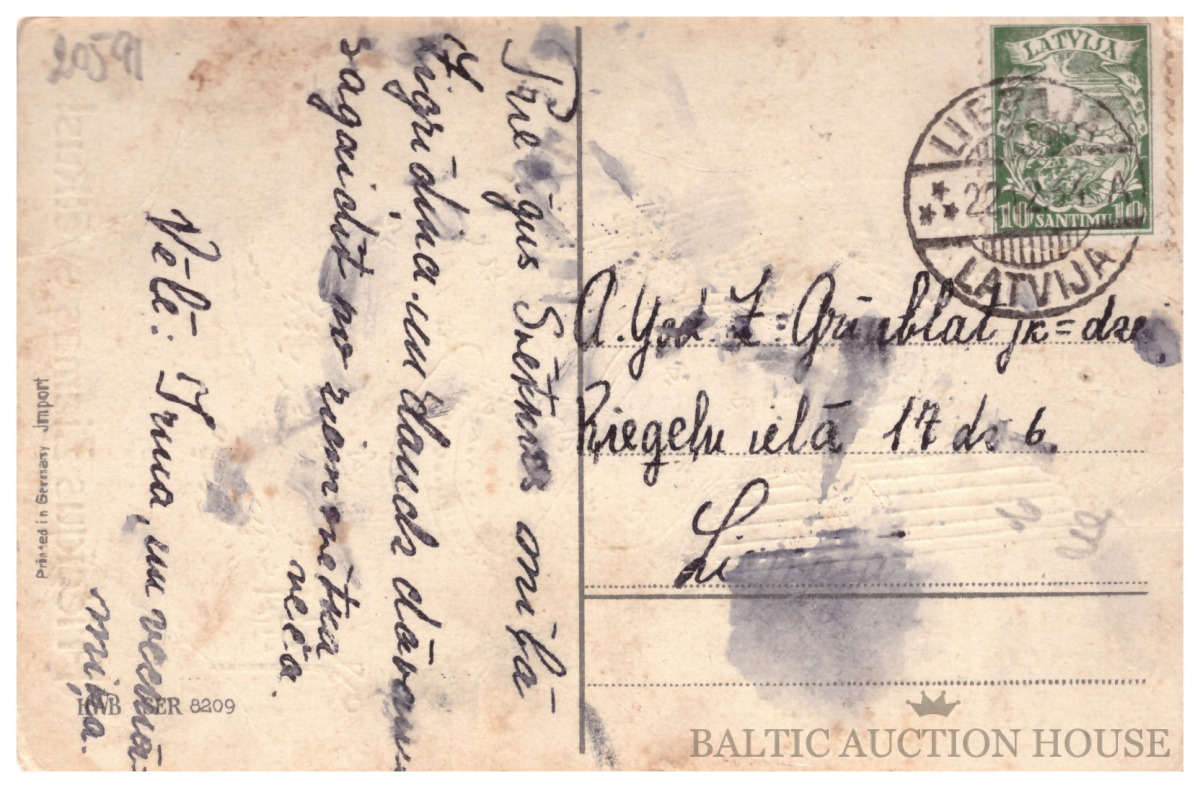 Priecīgus Svētkus mīļā
Zigrīdiņa un daudz dāvanu
sagaidīt no ziemsvētku
veča.
Vēlē. Irma, un vecmā-
miņa.
Printed in Germany Import
HWB SER 8209
LATVIJA
10 SANTIMU 10
LIEPAJA
22 12 34 A
LATVIJA
A. God. Z. Grinblat jk=dze
Ķieģeļu ielā 17 dz 6.
BALTIC AUCTION HOUSE